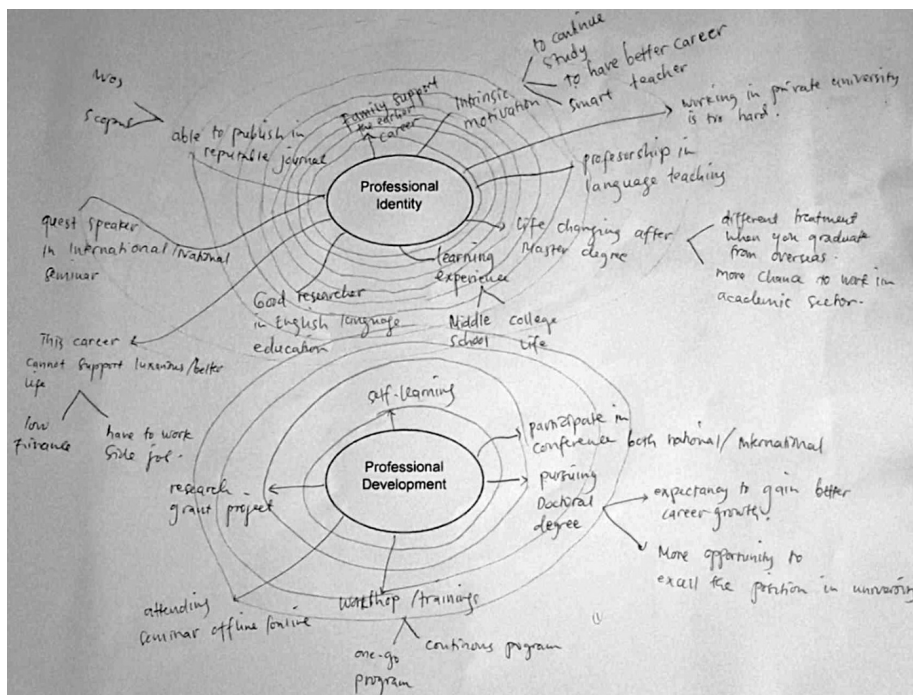 WoS
Scopus
able to publish in
reputable journal
Family support
the earlier
career
Intrinsic
motivation
to continue
study
to have better career
smart teacher
working in private university
is too hard.
Professional
Identity
profesorship in
language teaching
guest speaker
in International/National
seminar
life changing after
Master degree
different treatment
when you graduate
from overseas.
more chance to work in
academic sector.
learning
experience
Middle
school
college
life
Good researcher
in English language
education
This career
cannot support luxurious/better
life
low
finance
have to work
side job.
self-learning
participate in
conference both national/international
Professional
Development
pursuing
Doctoral
degree
expectancy to gain better
career growth.
More opportunity to
excall the position in university
research
grant project
attending
seminar offline/online
workshop/trainings
one-go
program
continous program